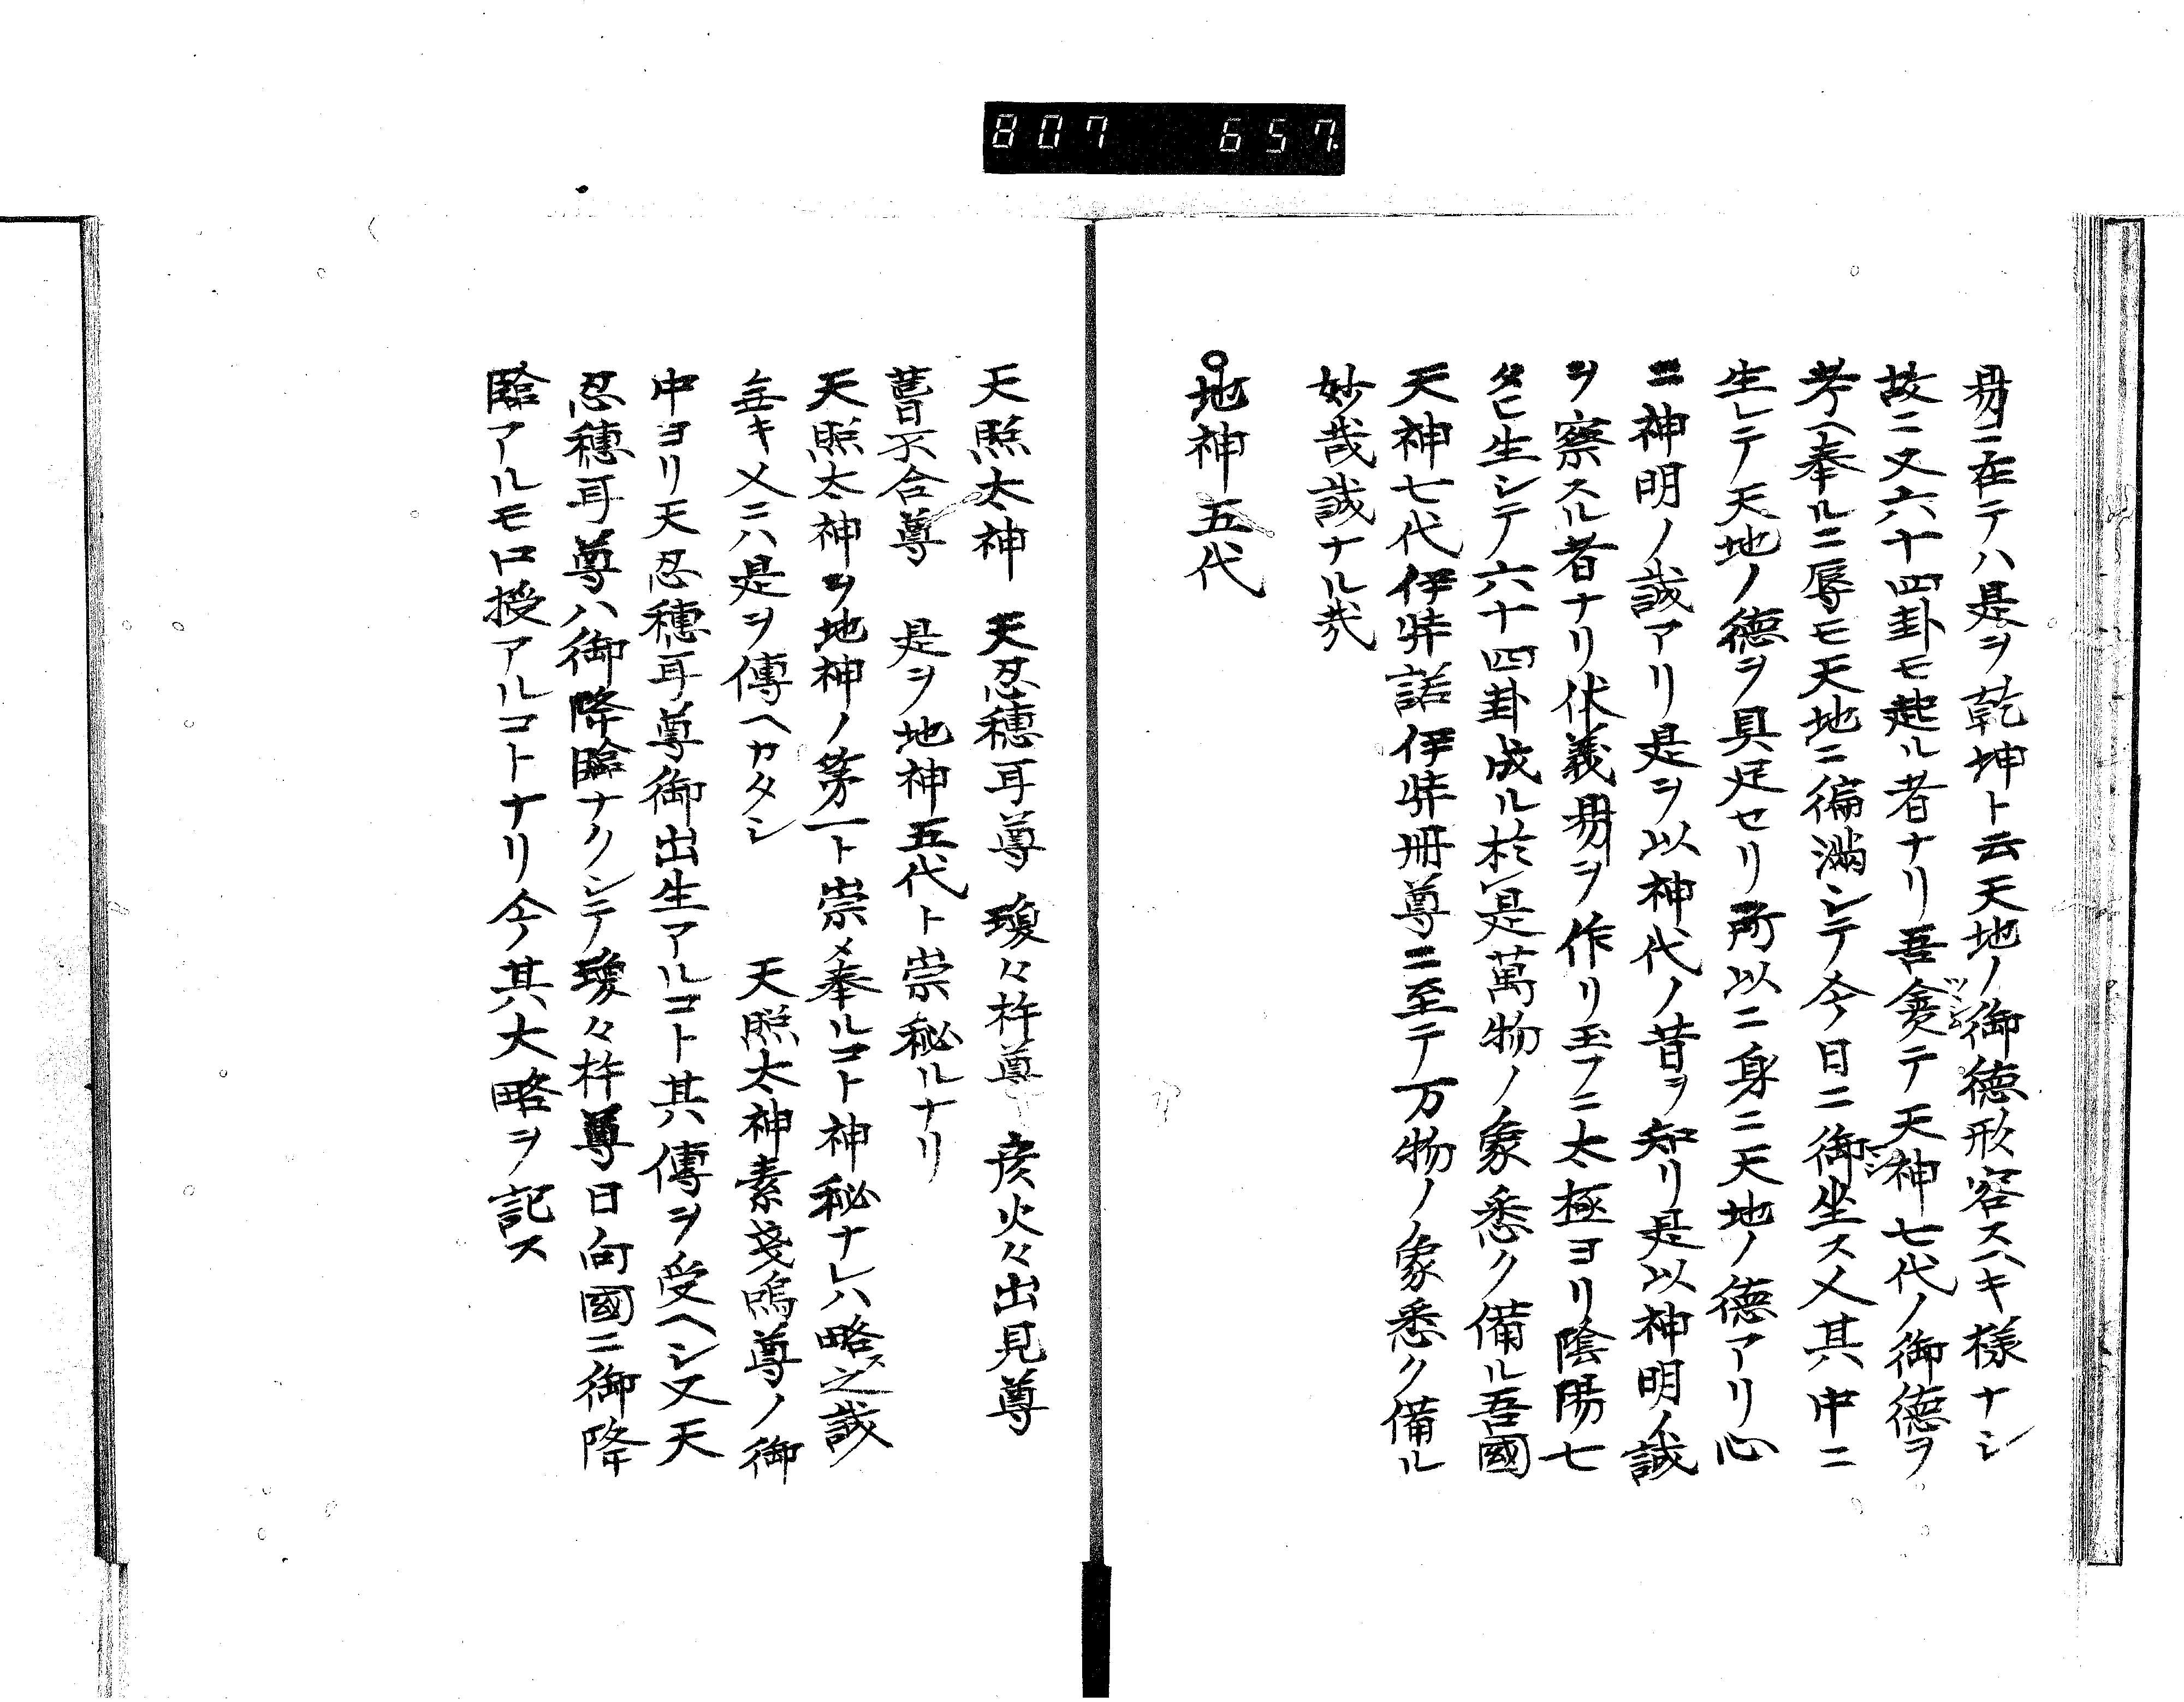 807 657
易ニ在テハ是ヲ乾坤ト云天地ノ御徳形容スヘキ様ナシ
故ニ又六十四卦モ起ル者ナリ吾テ天神七代ノ御徳ヲ
考ヘ奉ルニ辱モ天地ニ徧満シテ今日ニ御坐ス又其中ニ
生レテ天地ノ徳ヲ具足セリ所以ニ身ニ天地ノ徳アリ心
ニ神明ノ誠アリ是ヲ以神代ノ昔ヲ知リ是以神明ノ誠
ヲ察スル者ナリ伏義易ヲ作リ玉フニ太極ヨリ陰陽七
タヒ生シテ六十四卦成ル於是萬物ノ象悉ク備ル吾國
天神七代伊弉諾伊弉冊尊ニ至テ万物ノ象悉ク備ル
妙哉誠ナル哉
○地神五代
天照太神 天忍穂耳尊 瓊々杵尊 彦火々出見尊
葺不合尊 是ヲ地神五代ト崇秘ルナリ
天照太神ヲ地神ノ第一ト崇メ奉ルコト神秘ナレハ略ス之誠
無キ人ニハ是ヲ傳ヘカタシ 天照太神素戔嗚尊ノ御
中ヨリ天忍穂耳尊御出生アルコト其傳ヲ受ヘシ又天
忍穂耳尊ハ御降臨ナクシテ瓊々杵尊日向國ニ御降
臨アルモ口授アルコトナリ今其大略ヲ記ス